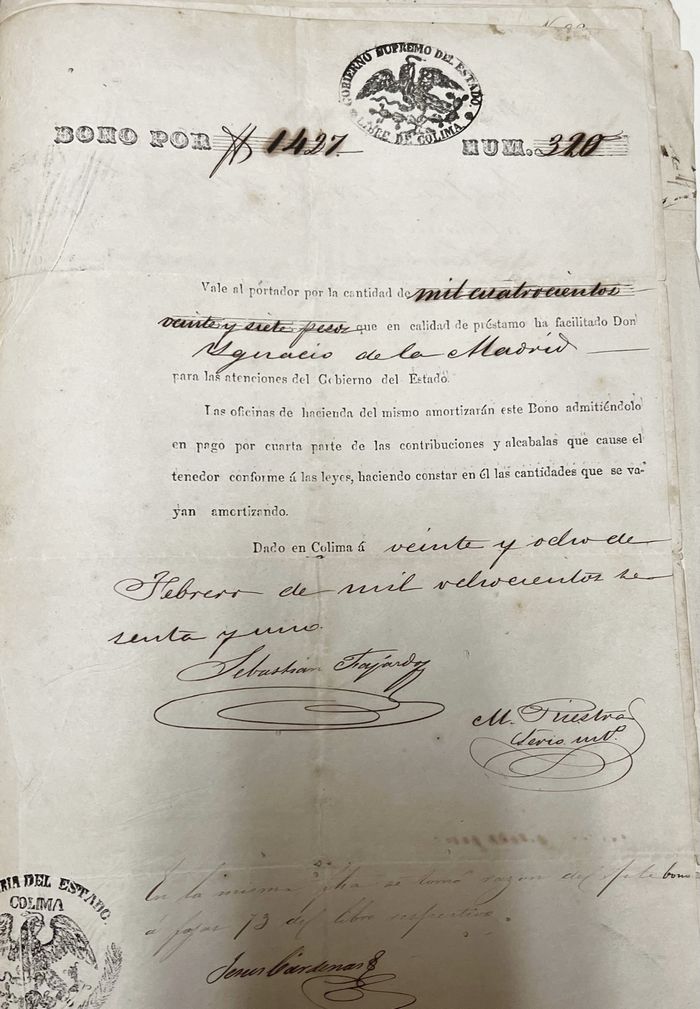 GOBIERNO SUPREMO DEL ESTADO
LIBRE DE COLIMA
BONO POR $ 1427. NUM. 320
Vale al portador por la cantidad de mil cuatrocientos
veinte y siete pesos que en calidad de préstamo ha facilitado Don
Ygnacio de la Madrid
para las atenciones del Gobierno del Estado.
Las oficinas de hacienda del mismo amortizarán este Bono admitiéndolo
en pago por cuarta parte de las contribuciones y alcabalas que cause el
tenedor conforme á las leyes, haciendo constar en él las cantidades que se va-
yan amortizando.
Dado en Colima á veinte y ocho de
Febrero de mil ochocientos se-
senta y uno.
Sebastián Fajardo
M.
Srio int.
En la misma fha se tomó razon del bono
á fojas 73 del libro respectivo.
RIA DEL ESTADO.
COLIMA
Jesus Cárdenas